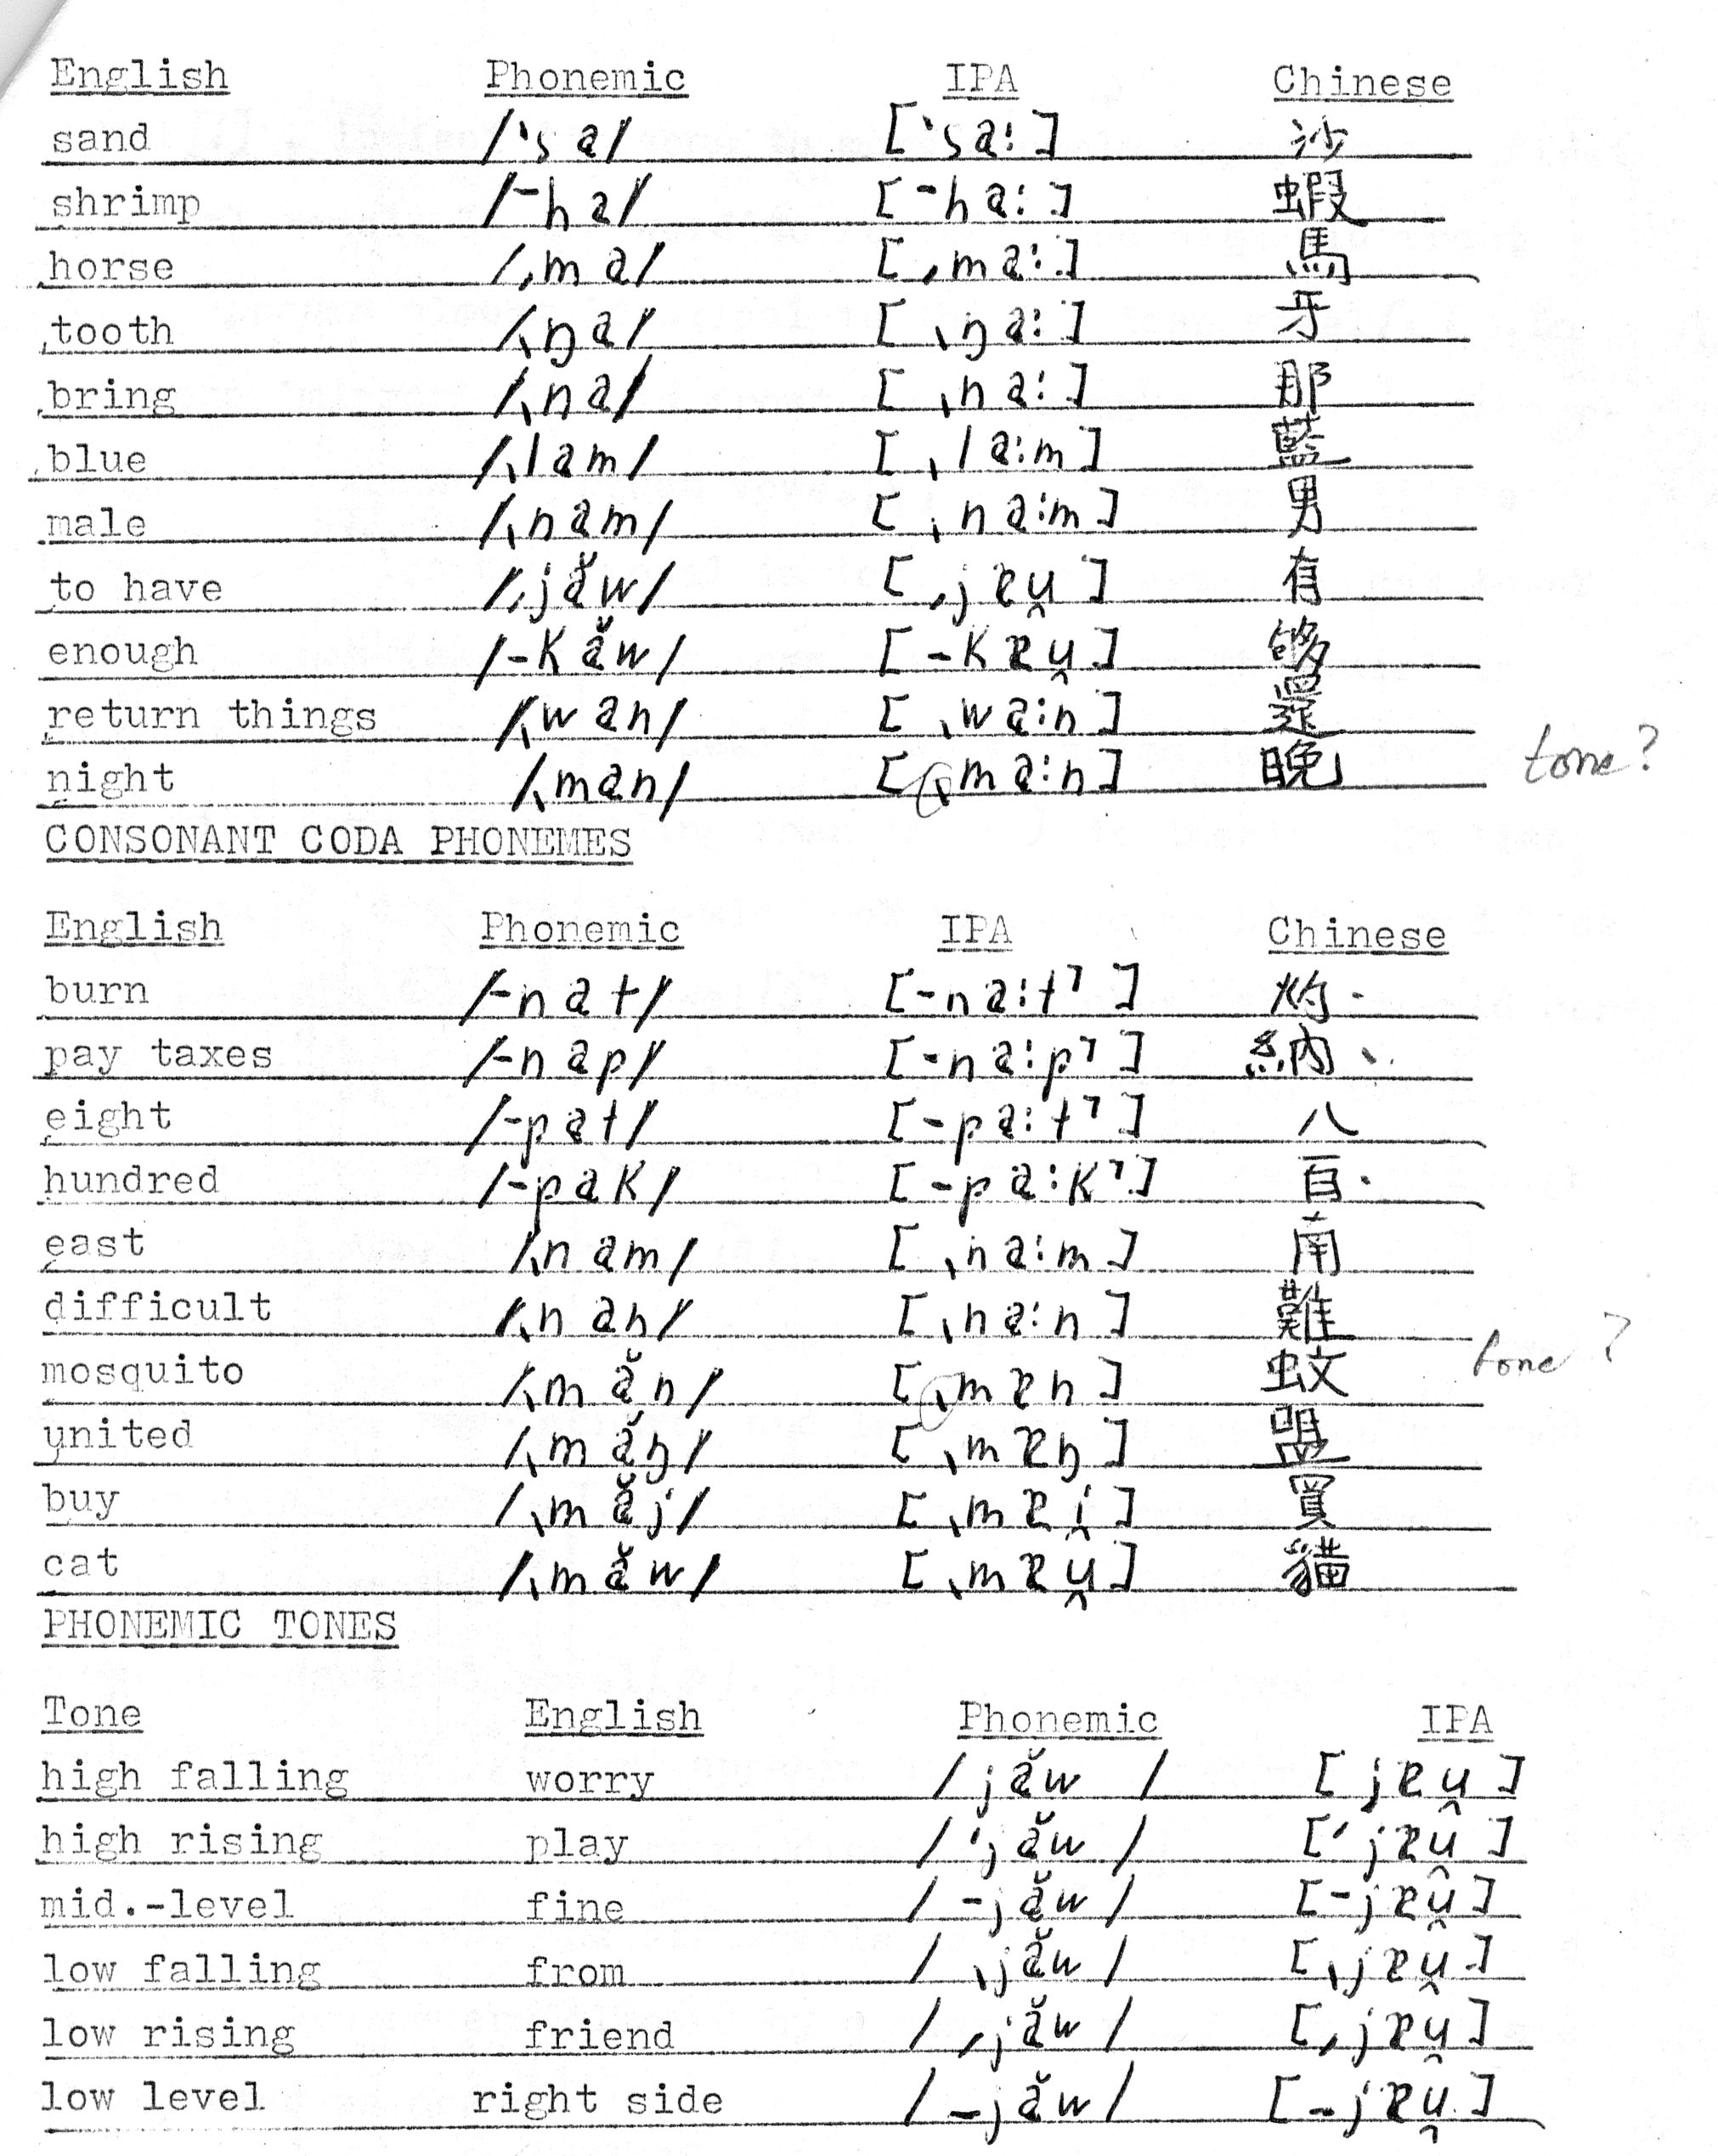 English Phonemic IPA Chinese
sand /ˋsa/ [ˋsa:] 沙
shrimp /ˉha/ [ˉha:] 蝦
horse /ˏma/ [ˏma:] 馬
tooth /ˎŋa/ [ˎŋa:] 牙
bring /ˎna/ [ˎna:] 那
blue /ˎlam/ [ˎla:m] 藍
male /ˎnam/ [ˎna:m] 男
to have /ˏjăw/ [ˏjɐu̯] 有
enough /-kăw/ [-kɐu̯] 够
return things /ˎwan/ [ˎwa:n] 還
night /ˎman/ [ˎma:n] 晚 tone?
CONSONANT CODA PHONEMES
English Phonemic IPA Chinese
burn /-nat/ [-na:t˺] 灼
pay taxes /-nap/ [-na:p˺] 納
eight /-pat/ [-pa:t˺] 八
hundred /-pak/ [-pa:k˺] 百
east /ˎnam/ [ˎna:m] 南
difficult /ˎnan/ [ˎna:n] 難
mosquito /ˎmăn/ [ˎmɐn] 蚊 tone?
united /ˎmăŋ/ [ˎmɐŋ] 盟
buy /ˎmăj/ [ˎmɐi̯] 買
cat /ˎmăw/ [ˎmɐu̯] 貓
PHONEMIC TONES
Tone English Phonemic IPA
high falling worry /jăw / [jɐu̯]
high rising play /ˊjăw/ [ˊjɐu̯]
mid.-level fine /-jăw/ [-jɐu̯]
low falling from /ˎjăw/ [ˎjɐu̯]
low rising friend /ˏjăw/ [ˏjɐu̯]
low level right side /ˍjăw/ [ˍjɐu̯]